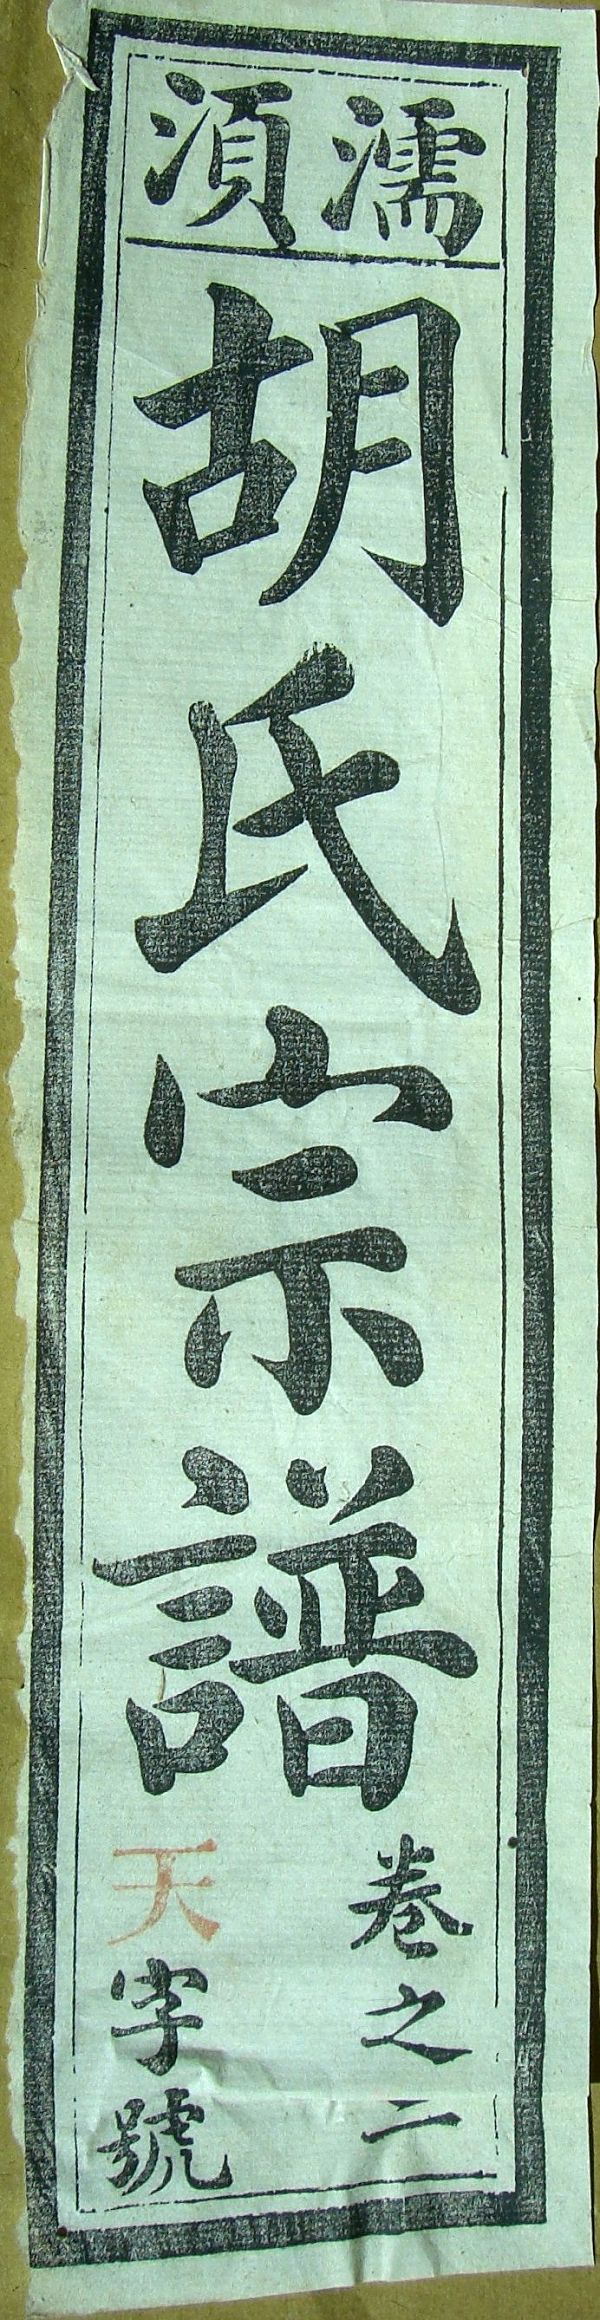 濡湏
胡氏宗譜
卷之二
天字號